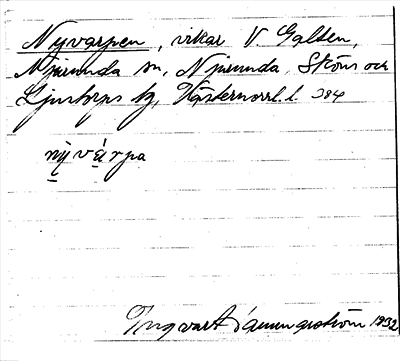 Nyvarpen, vikar V. Galten,
Njurunda sn, Njurunda, Sköns och
Ljustorps tg, Västernorrl. l. J84
nyvárpa
Ingvar 1932